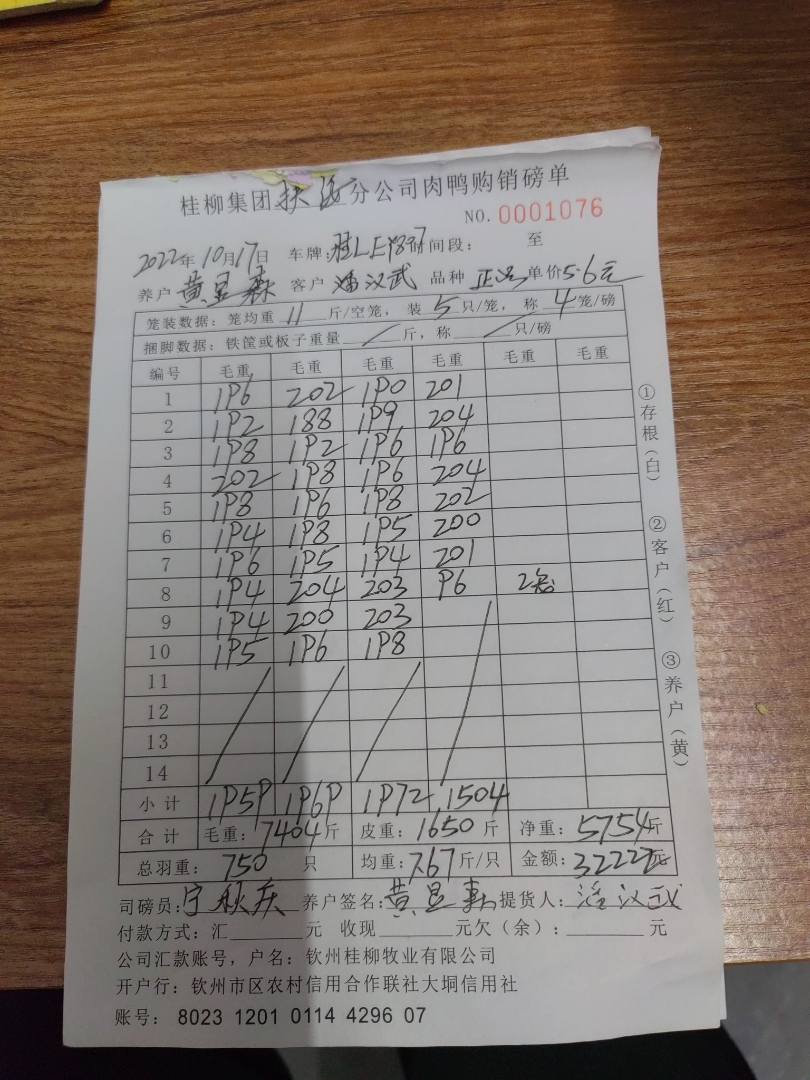 桂柳集团扶 分公司肉鸭购销磅单
NO. 0001076
2022年10月17日 车牌: 时间段: 至
养户 黄显森 客户 潘汉武 品种 单价5.6元
笼装数据: 笼均重 11 斤/空笼, 装 5 只/笼, 称 4 笼/磅
捆脚数据: 铁筐或板子重量 / 斤, 称 / 只/磅
编号 毛重 毛重 毛重 毛重 毛重 毛重
1 196 202 190 201
2 192 188 199 204
3 198 192 196 196
4 202 198 196 204
5 198 196 198 202
6 194 198 195 200
7 196 195 194 201
8 194 204 203 96 2笼
9 194 200 203
10 195 196 198
11
12
13
14
小计 1959 1969 1972 1504
合计 毛重: 7404斤 皮重: 1650斤 净重: 5754斤
总羽重: 750 只 均重: 7.67斤/只 金额: 32222元
司磅员: 宁秋庆 养户签名: 黄显森 提货人: 潘汉武
付款方式: 汇______元 收现______元欠(余): ______元
公司汇款账号, 户名: 钦州桂柳牧业有限公司
开户行: 钦州市区农村信用合作联社大垌信用社
账号: 8023 1201 0114 4296 07
①存根(白)
②客户(红)
③养户(黄)